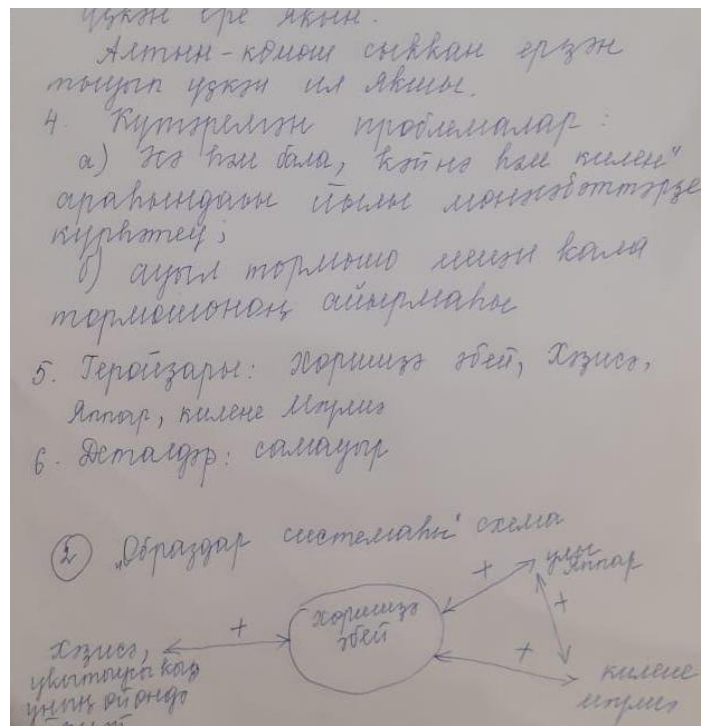 үҙкән ере яҡын.
Алтын-көмөш сыҡҡан ерҙән
тыуып үҫкән ил яҡшы.
4. Күтәрелгән проблемалар:
а) Әсә һәм бала, ҡәйнә һәм килен"
араһындағы йылы мөнәсәбәттәрҙе
күрһәтеү;
б) ауыл тормошо менән ҡала
тормошоноң айырмаһы
5. Геройҙары: Хөршиҙә әбей, Хәҙисә,
Яппар, килене Мәүлиә
6. Деталдәр: самауыр
2 „Образдар системаһы" схема
улы
Яппар
+
+
Хөршиҙә
әбей
+
+
Хәҙисә,
уҡытыусы ҡыҙ
уның өйөндә
килене
Мәүлиә